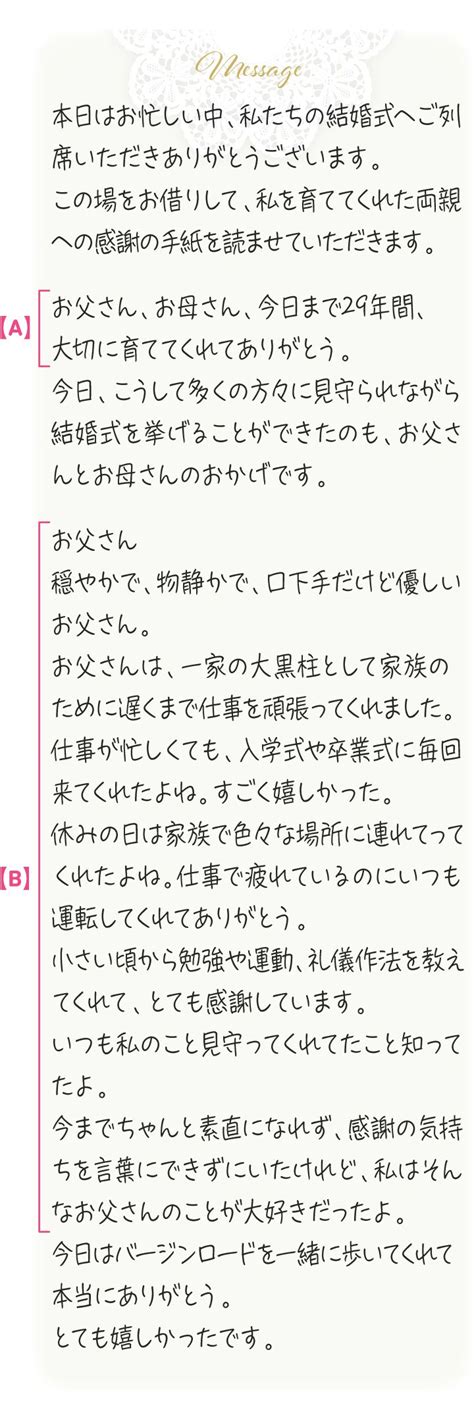 Message
本日はお忙しい中、私たちの結婚式へご列
席いただきありがとうございます。
この場をお借りして、私を育ててくれた両親
への感謝の手紙を読ませていただきます。
【A】
お父さん、お母さん、今日まで29年間、
大切に育ててくれてありがとう。
今日、こうして多くの方々に見守られながら
結婚式を挙げることができたのも、お父さ
んとお母さんのおかげです。
【B】
お父さん
穏やかで、物静かで、口下手だけど優しい
お父さん。
お父さんは、一家の大黒柱として家族の
ために遅くまで仕事を頑張ってくれました。
仕事が忙しくても、入学式や卒業式に毎回
来てくれたよね。すごく嬉しかった。
休みの日は家族で色々な場所に連れてって
くれたよね。仕事で疲れているのにいつも
運転してくれてありがとう。
小さい頃から勉強や運動、礼儀作法を教え
てくれて、とても感謝しています。
いつも私のこと見守ってくれてたこと知って
たよ。
今までちゃんと素直になれず、感謝の気持
ちを言葉にできずにいたけれど、私はそん
なお父さんのことが大好きだったよ。
今日はバージンロードを一緒に歩いてくれて
本当にありがとう。
とても嬉しかったです。